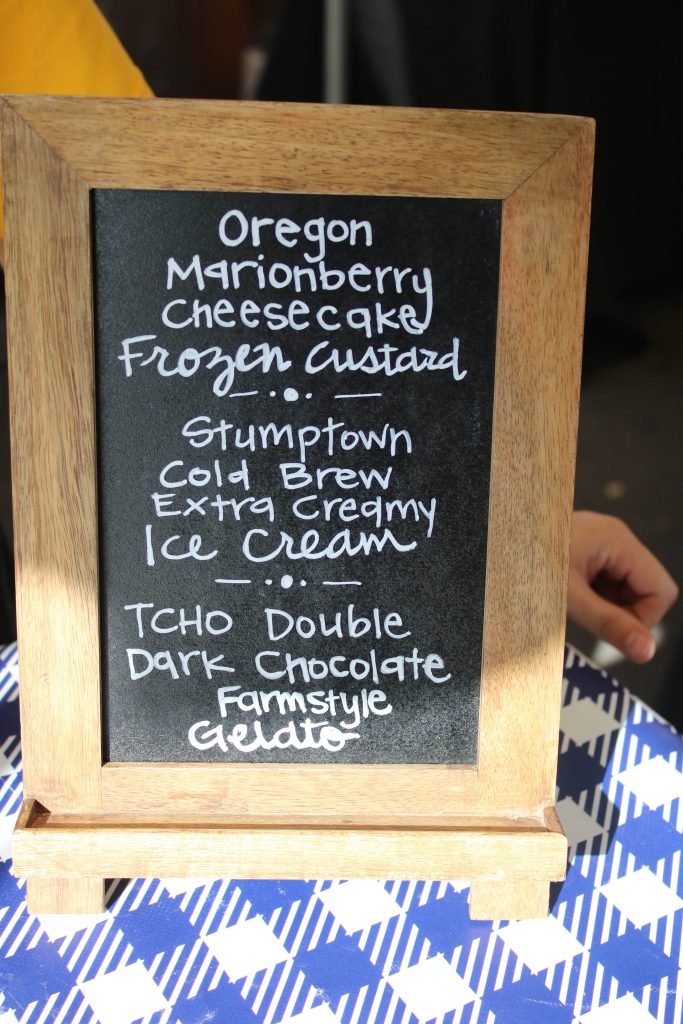 Oregon
Marionberry
Cheesecake
Frozen Custard
Stumptown
Cold Brew
Extra Creamy
Ice Cream
TCHO Double
Dark Chocolate
Farmstyle
Gelato